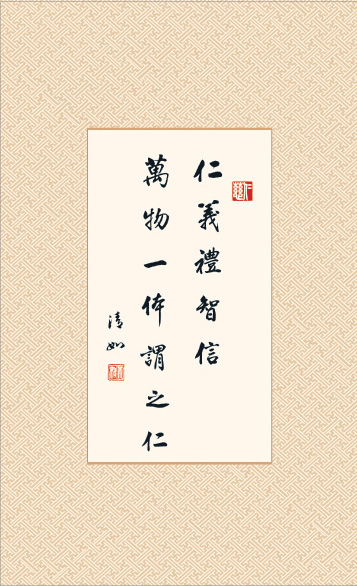 仁義禮智信
萬物一体謂之仁
清如